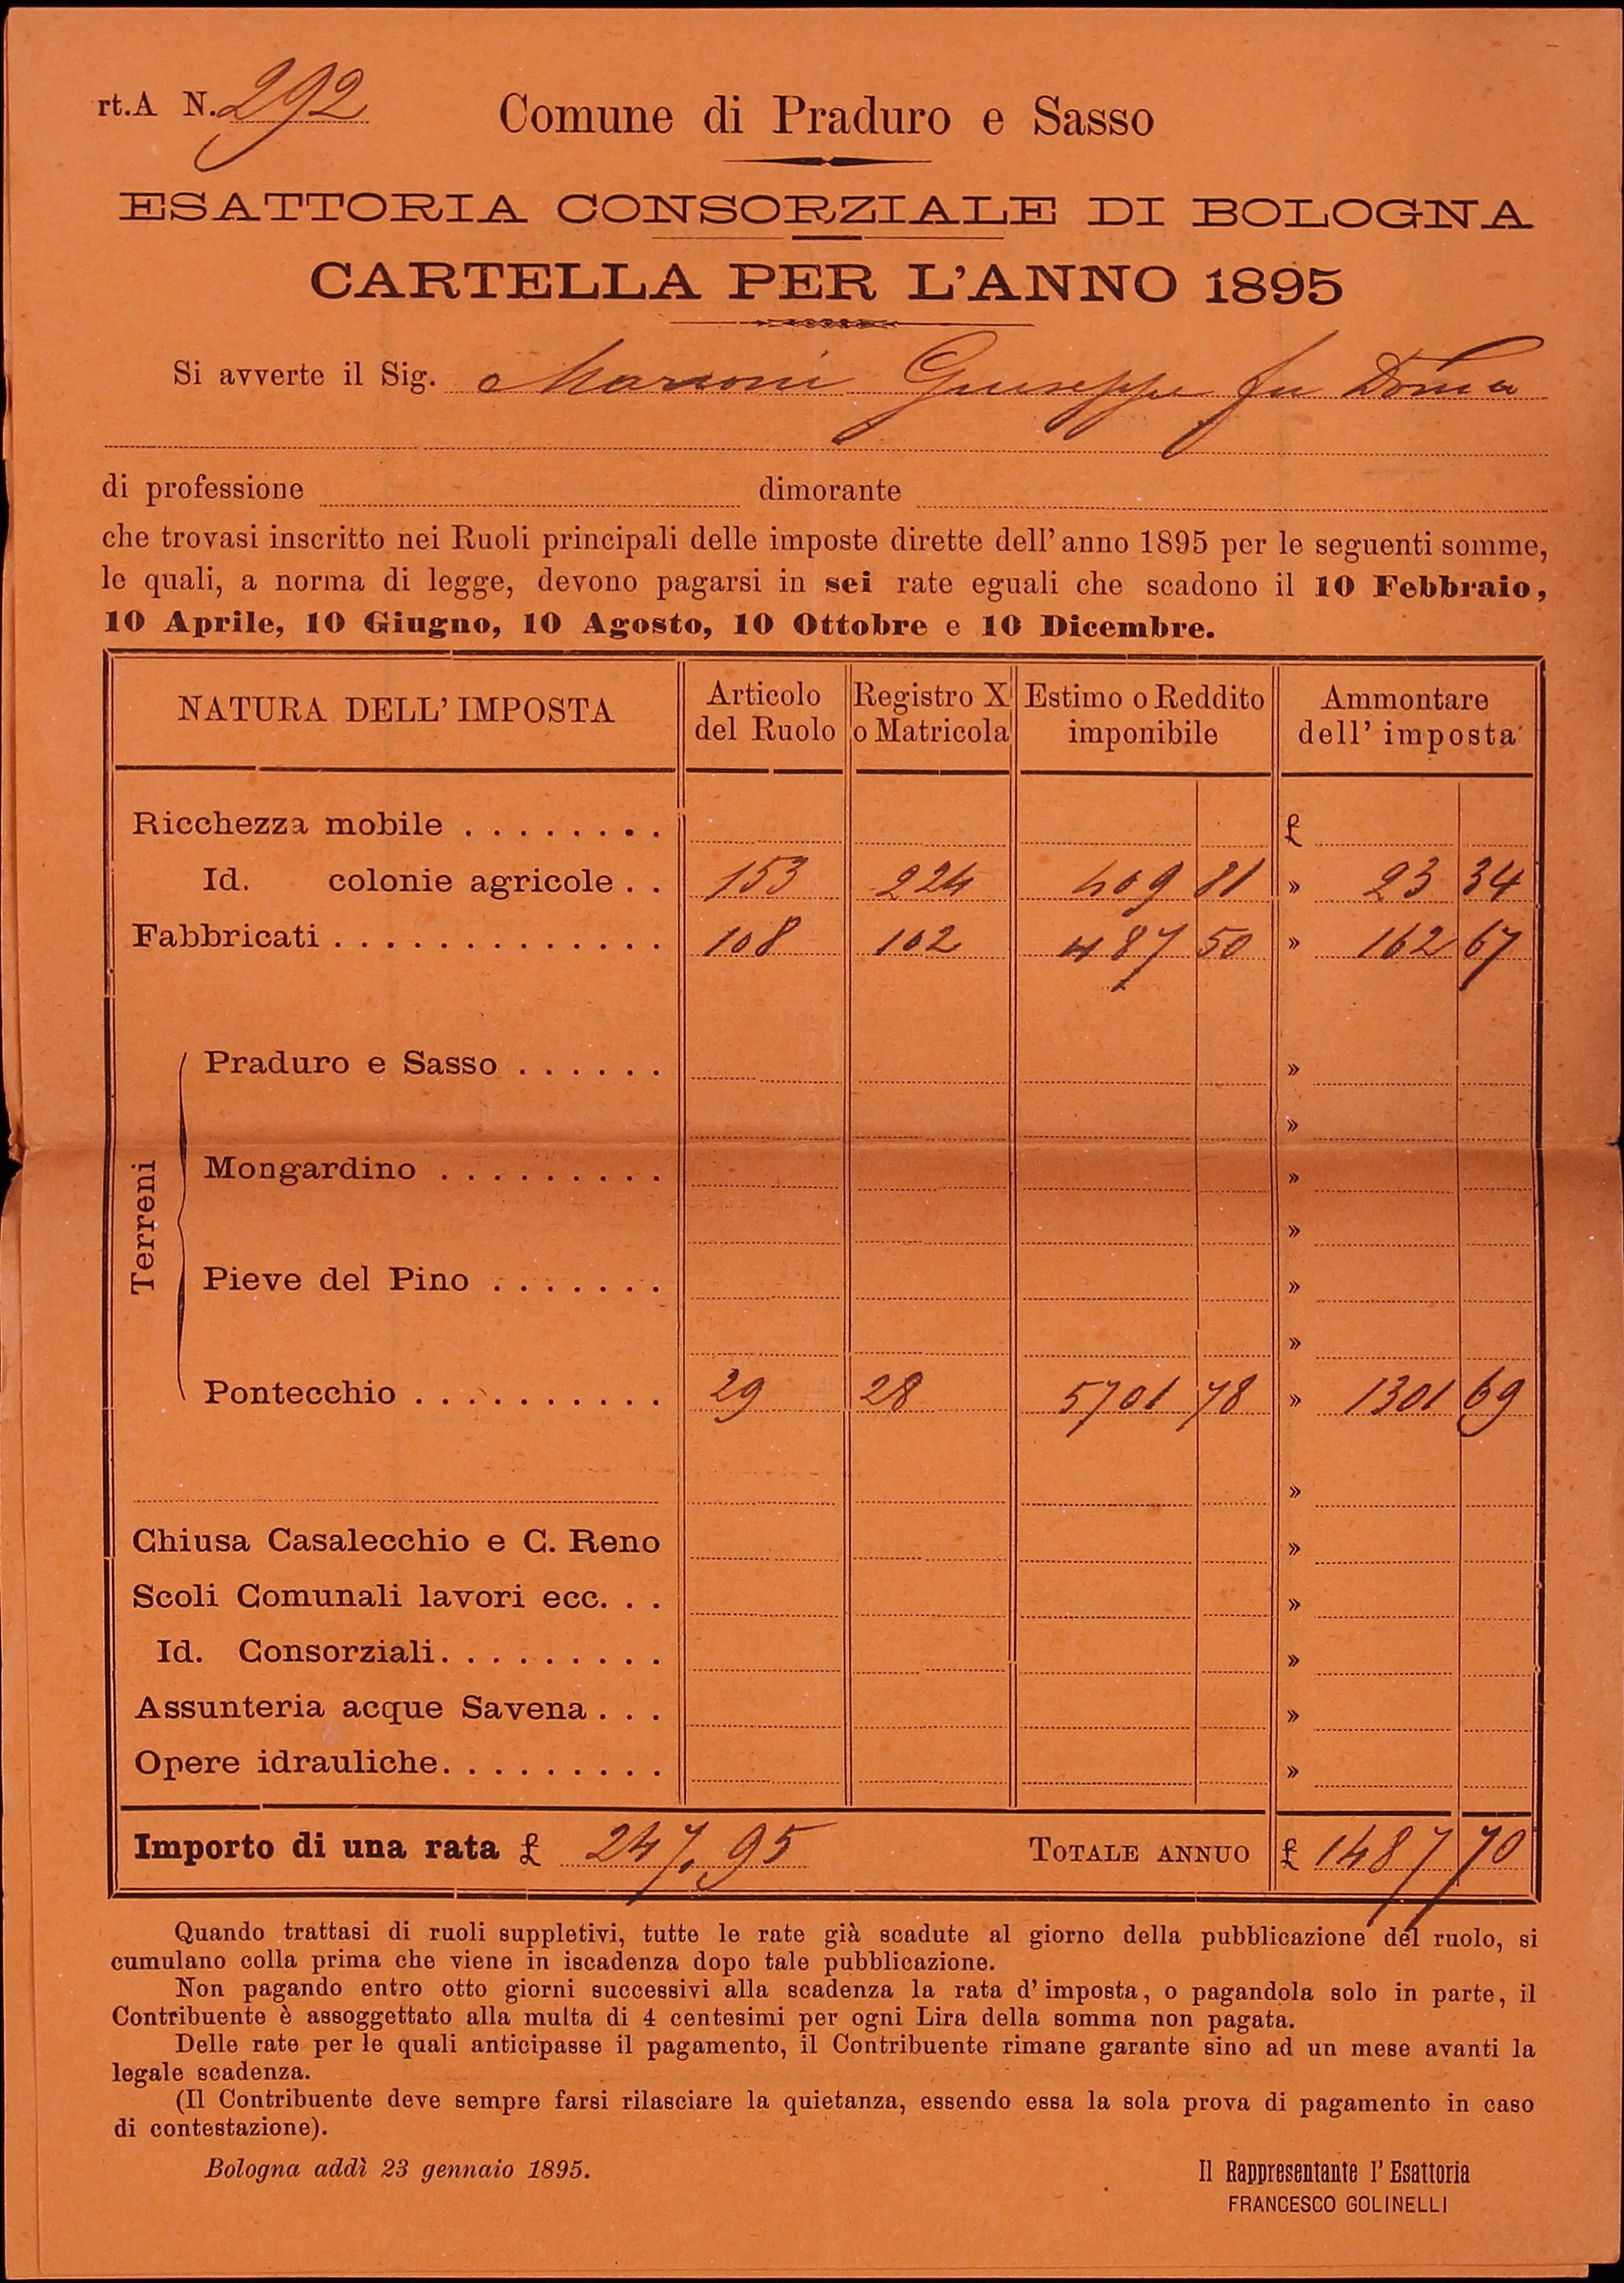 rt.A N. 292
Comune di Praduro e Sasso
ESATTORIA CONSORZIALE DI BOLOGNA
CARTELLA PER L'ANNO 1895
Si avverte il Sig. Marconi Giuseppe fu Domco
di professione dimorante
che trovasi inscritto nei Ruoli principali delle imposte dirette dell' anno 1895 per le seguenti somme,
le quali, a norma di legge, devono pagarsi in sei rate eguali che scadono il 10 Febbraio,
10 Aprile, 10 Giugno, 10 Agosto, 10 Ottobre e 10 Dicembre.
NATURA DELL' IMPOSTA Articolo del Ruolo Registro X o Matricola Estimo o Reddito imponibile Ammontare dell' imposta
Ricchezza mobile . . . . . . . . £
Id. colonie agricole . . 153 224 409 81 » 23 34
Fabbricati . . . . . . . . . . . . . . 108 102 487 50 » 162 67
Terreni
Praduro e Sasso . . . . . . »
»
Mongardino . . . . . . . . . »
»
Pieve del Pino . . . . . . . »
»
Pontecchio . . . . . . . . . . 29 28 5701 78 » 1301 69
»
Chiusa Casalecchio e C. Reno »
Scoli Comunali lavori ecc. . . »
Id. Consorziali. . . . . . . . . »
Assunteria acque Savena . . . »
Opere idrauliche. . . . . . . . . »
Importo di una rata £ 247.95 TOTALE ANNUO £ 1487 70
Quando trattasi di ruoli suppletivi, tutte le rate già scadute al giorno della pubblicazione del ruolo, si
cumulano colla prima che viene in iscadenza dopo tale pubblicazione.
Non pagando entro otto giorni successivi alla scadenza la rata d' imposta, o pagandola solo in parte, il
Contribuente è assoggettato alla multa di 4 centesimi per ogni Lira della somma non pagata.
Delle rate per le quali anticipasse il pagamento, il Contribuente rimane garante sino ad un mese avanti la
legale scadenza.
(Il Contribuente deve sempre farsi rilasciare la quietanza, essendo essa la sola prova di pagamento in caso
di contestazione).
Bologna addì 23 gennaio 1895.
Il Rappresentante l' Esattoria
FRANCESCO GOLINELLI